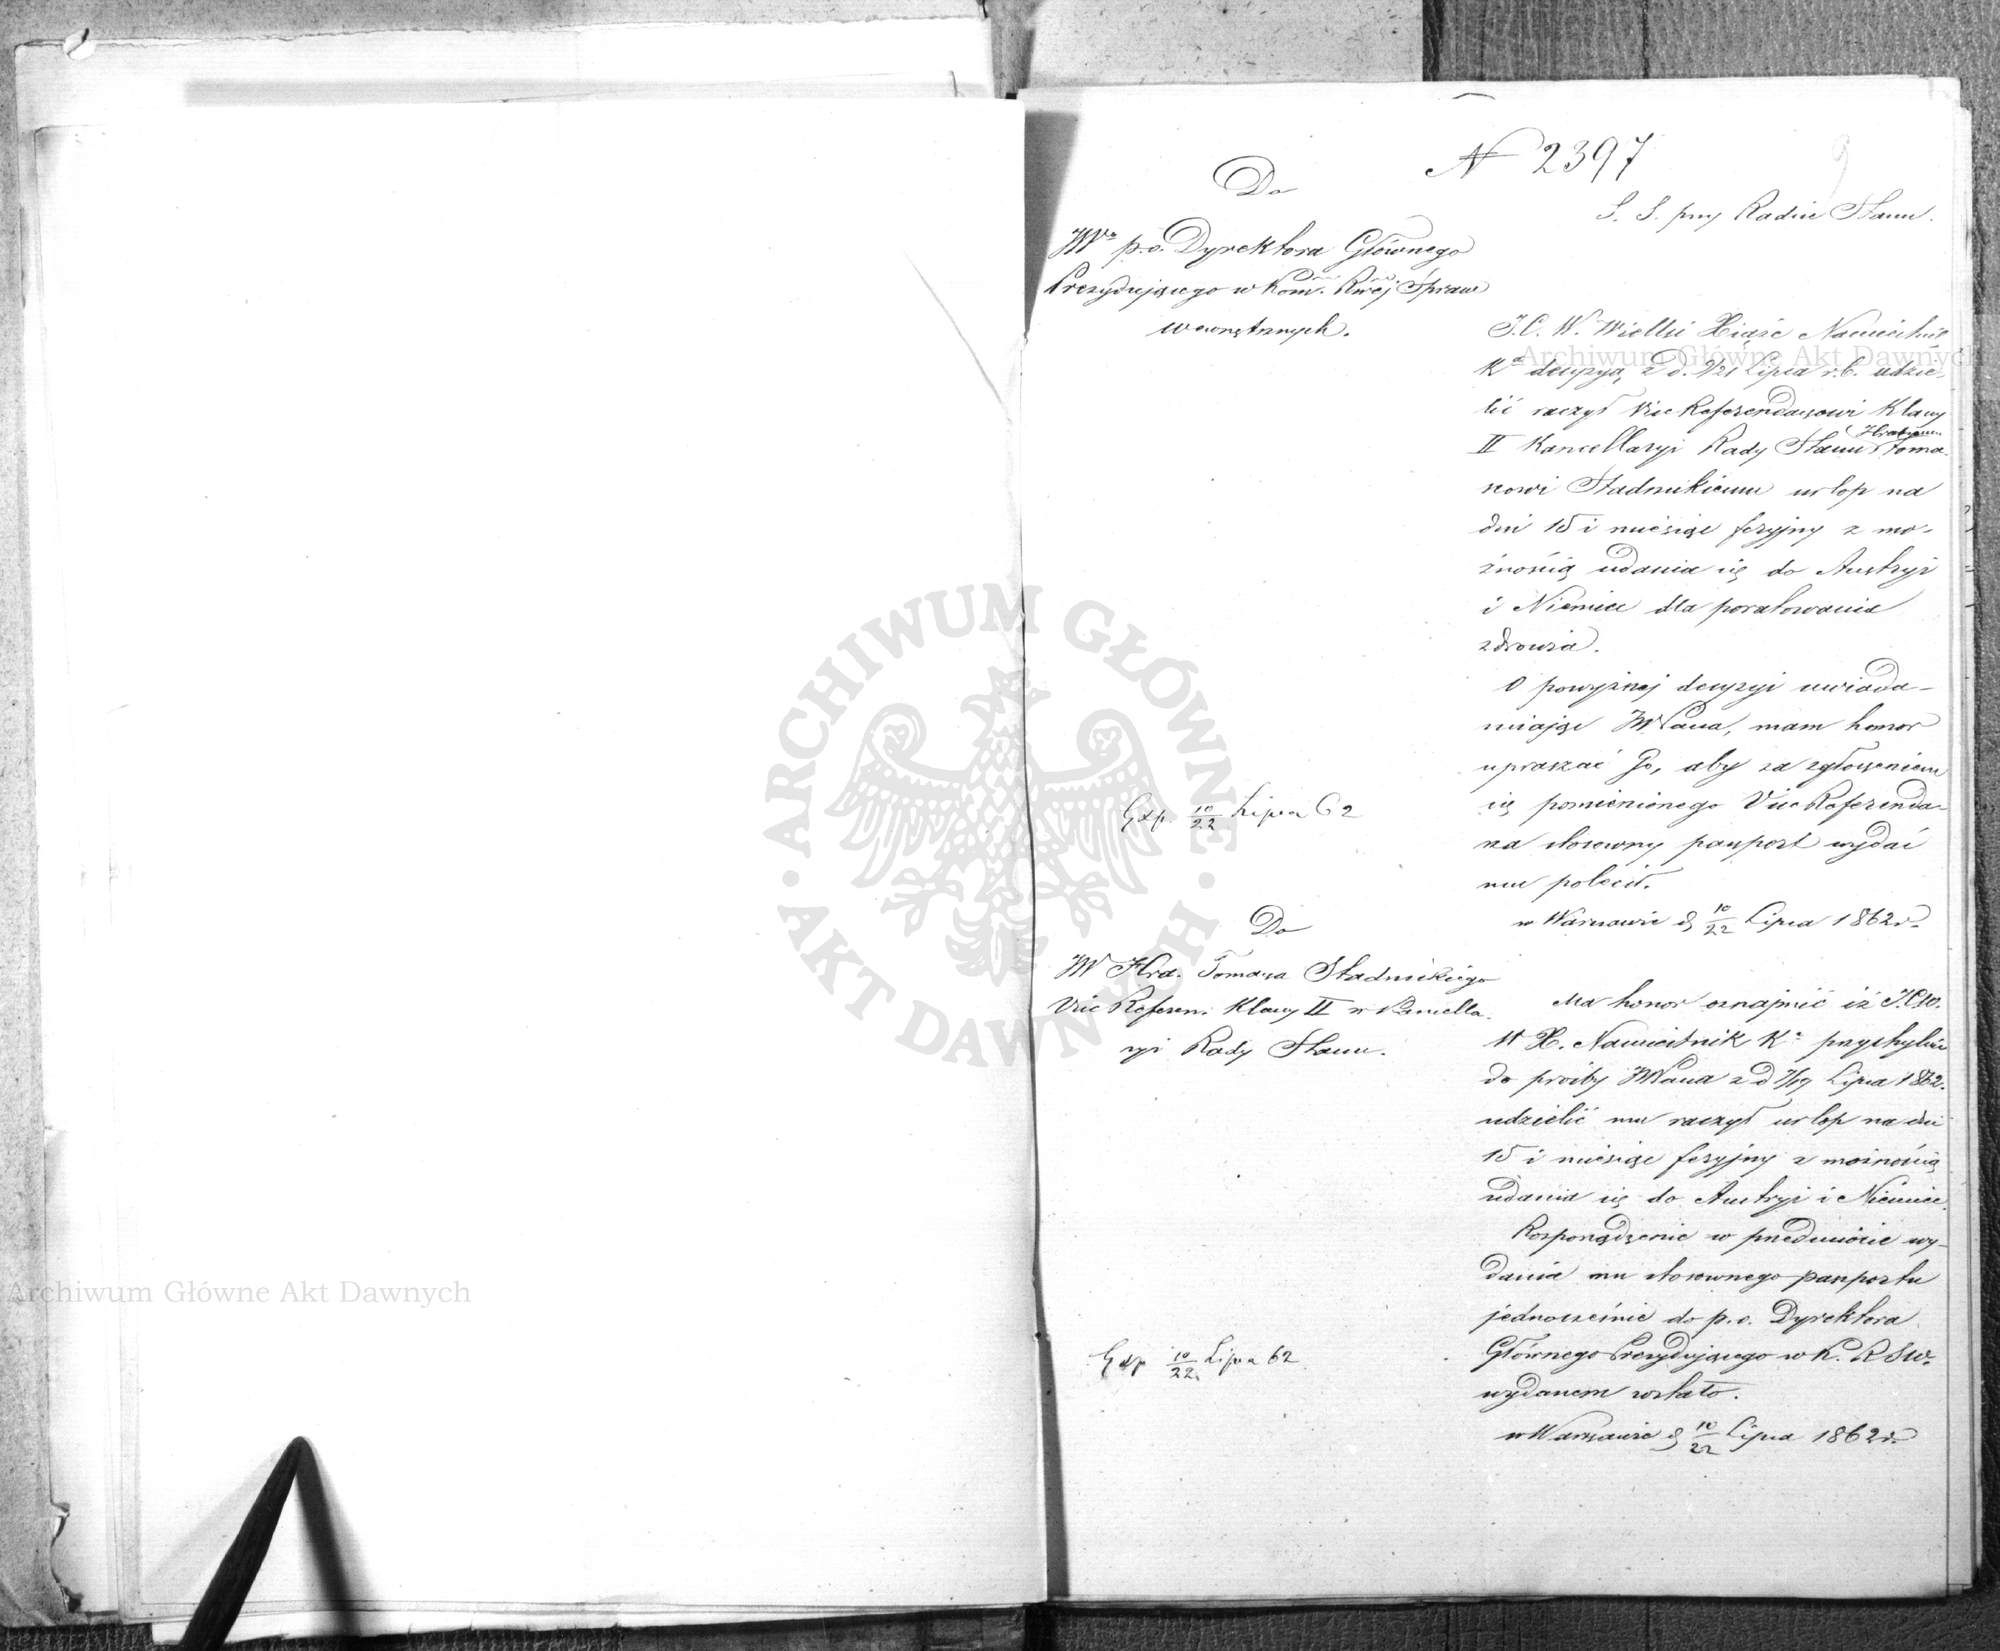 N 2397
9
S. S. przy Radzie Stanu.
Do
JWo p.o. Dyrektora Głównego
Prezydującego w Kom. Rwej Spraw
wewnętrznych.
J. C. W. Wielki Xiąże Namiestnik
Ka decyzyą z d. 9/21 Lipca r.b. udzie-
lić raczył Vice Referendarzowi Klassy
II Kancellaryi Rady Stanu Hrabiemu Toma-
szowi Stadnickiemu urlop na
dni 15 i miesiąc feryjny z mo-
żnością udania się do Austryi
i Niemiec dla poratowania
zdrowia.
O powyższej decyzyi uwiada-
miając JWPana, mam honor
upraszać Go, aby za zgłoszeniem
się pomienionego Vice Referenda-
rza stosowny paszport wydać
mu polecił.
w Warszawie d 10/22 Lipca 1862 r.
Exp. 10/22 Lipca 62
Do
JW Hra. Tomasza Stadnickiego
Vice Referen. Klassy II w Kancella-
ryi Rady Stanu.
Ma honor oznajmić iż J.C.W.
W X. Namiestnik K. przychylnie
do prośby JWPana z d 7/19 Lipca 1862.
udzielić mu raczył urlop na dni
15 i miesiąc feryjny z możnością
udania się do Austryi i Niemiec.
Rozporządzenie w przedmiocie wy-
dania mu stosownego paszportu
jednocześnie do p.o. Dyrektora
Głównego Prezydującego w K. R S W.
wydanem zostało.
w Warszawie d 10/22 Lipca 1862 r.
Exp 10/22 Lipca 62
Archiwum Główne Akt Dawnych
Archiwum Główne Akt Dawnych
ARCHIWUM GŁÓWNE · AKT DAWNYCH ·